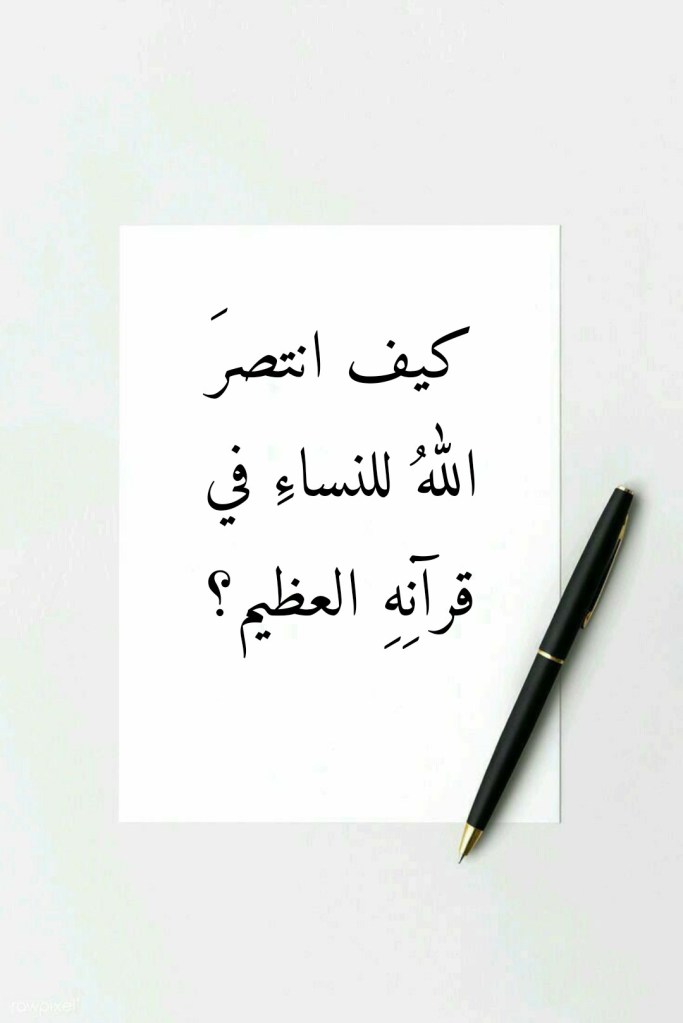 كيف انتصرَ
اللهُ للنساءِ في
قرآنِهِ العظيم؟